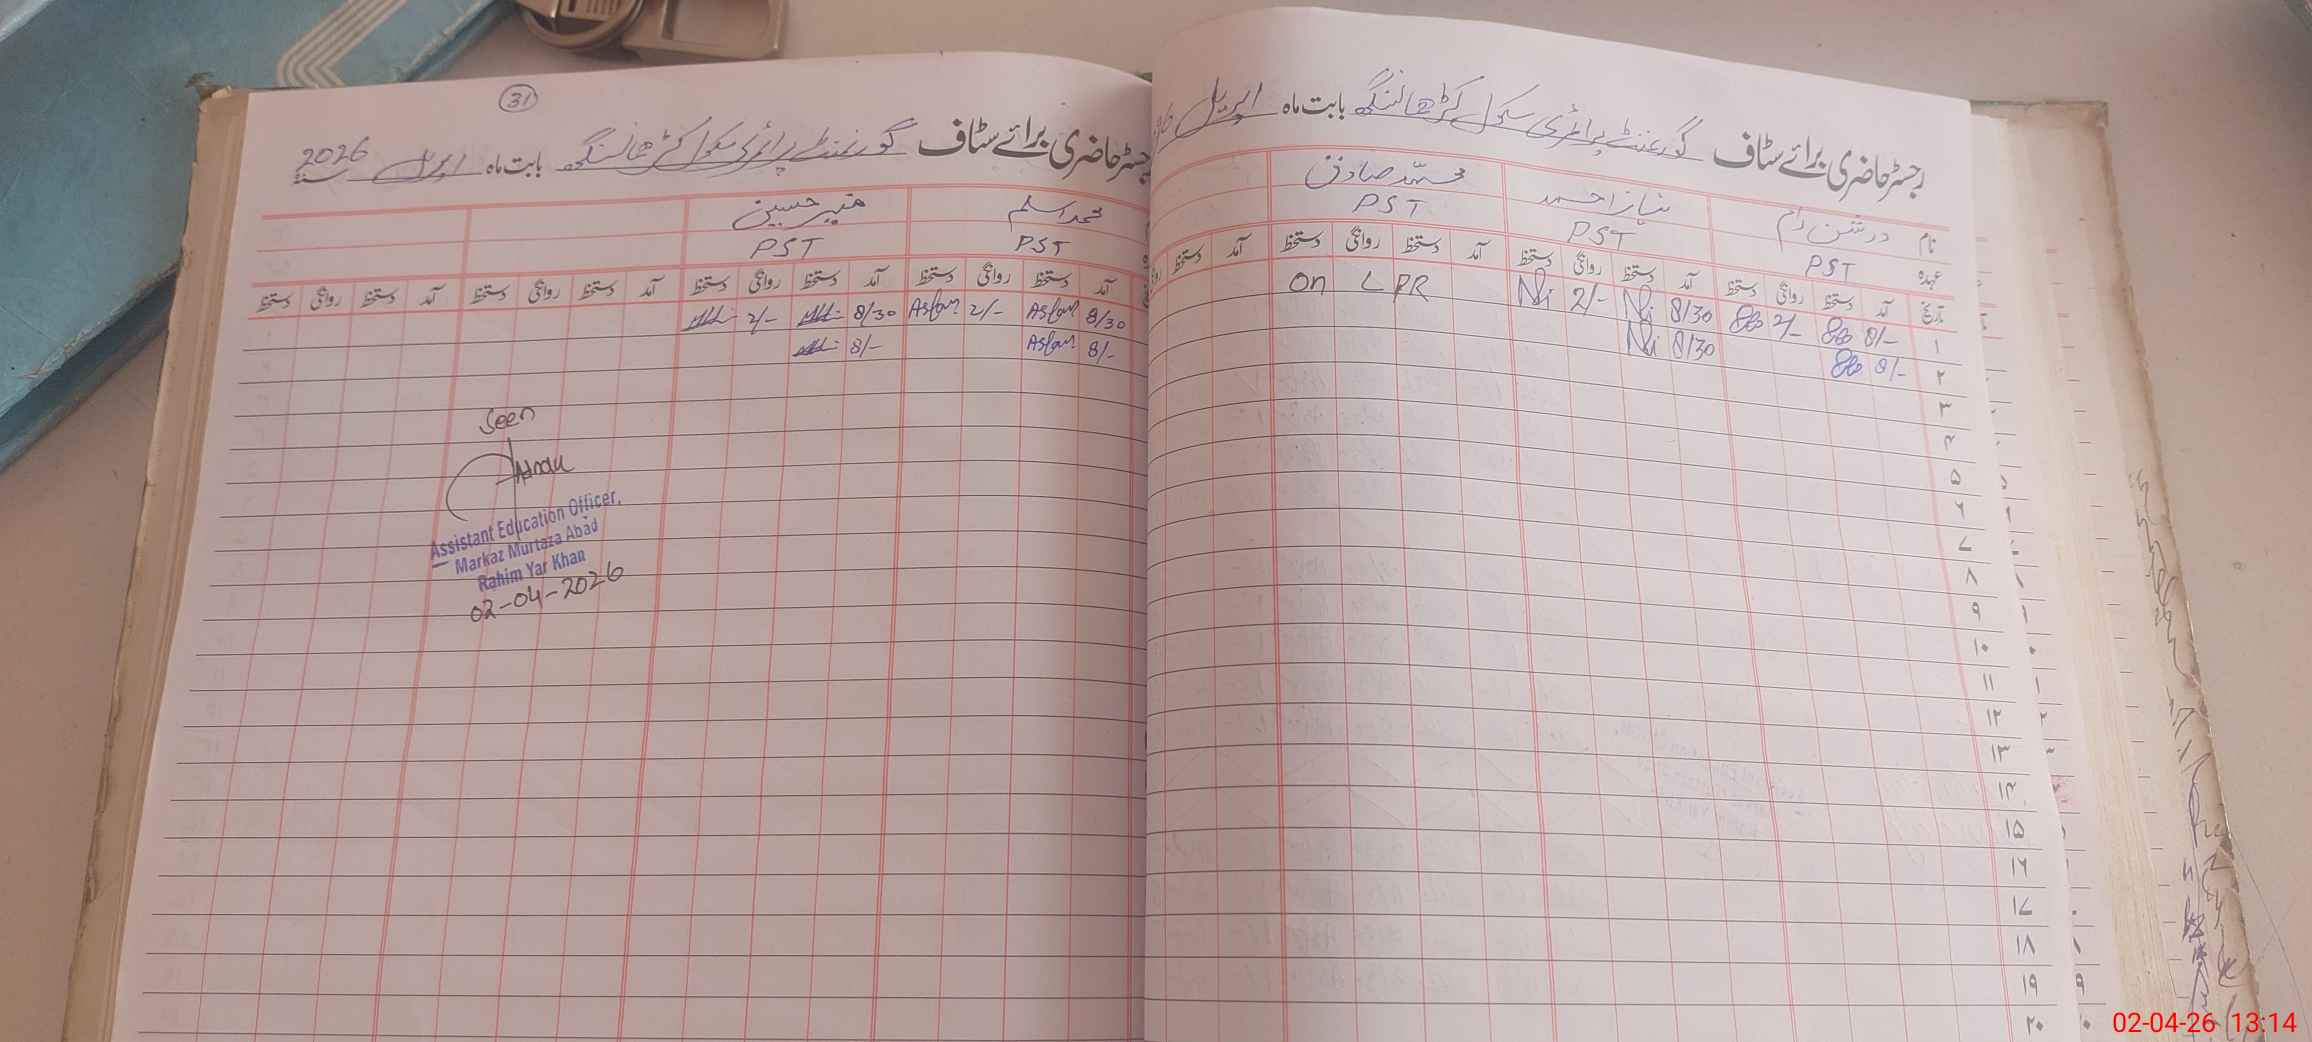 رجسٹر حاضری برائے سٹاف گورنمنٹ پرائمری سکول گڑھا سنگھ بابت ماہ اپریل
نام درشن رام نیاز احمد محمد صادق
عہدہ PST PST PST
تاریخ آمد دستخط روانگی دستخط آمد دستخط روانگی دستخط آمد دستخط روانگی دستخط آمد دستخط
۱ 8/- 2/- 8/30 2/- On LPR
۲ 8/- 8/30
۳
۴
۵
۶
۷
۸
۹
۱۰
۱۱
۱۲
۱۳
۱۴
۱۵
۱۶
۱۷
۱۸
۱۹
۲۰
31
رجسٹر حاضری برائے سٹاف گورنمنٹ پرائمری سکول گڑھا سنگھ بابت ماہ اپریل 2026
محمد اسلم حسین
PST PST
آمد دستخط روانگی دستخط آمد دستخط روانگی دستخط آمد دستخط روانگی دستخط
8/30 Aslam 2/- Aslam 8/30 2/-
8/- Aslam 8/-
Seen
Assistant Education Officer,
Markaz Murtaza Abad
Rahim Yar Khan
02-04-2026
02-04-26 13:14